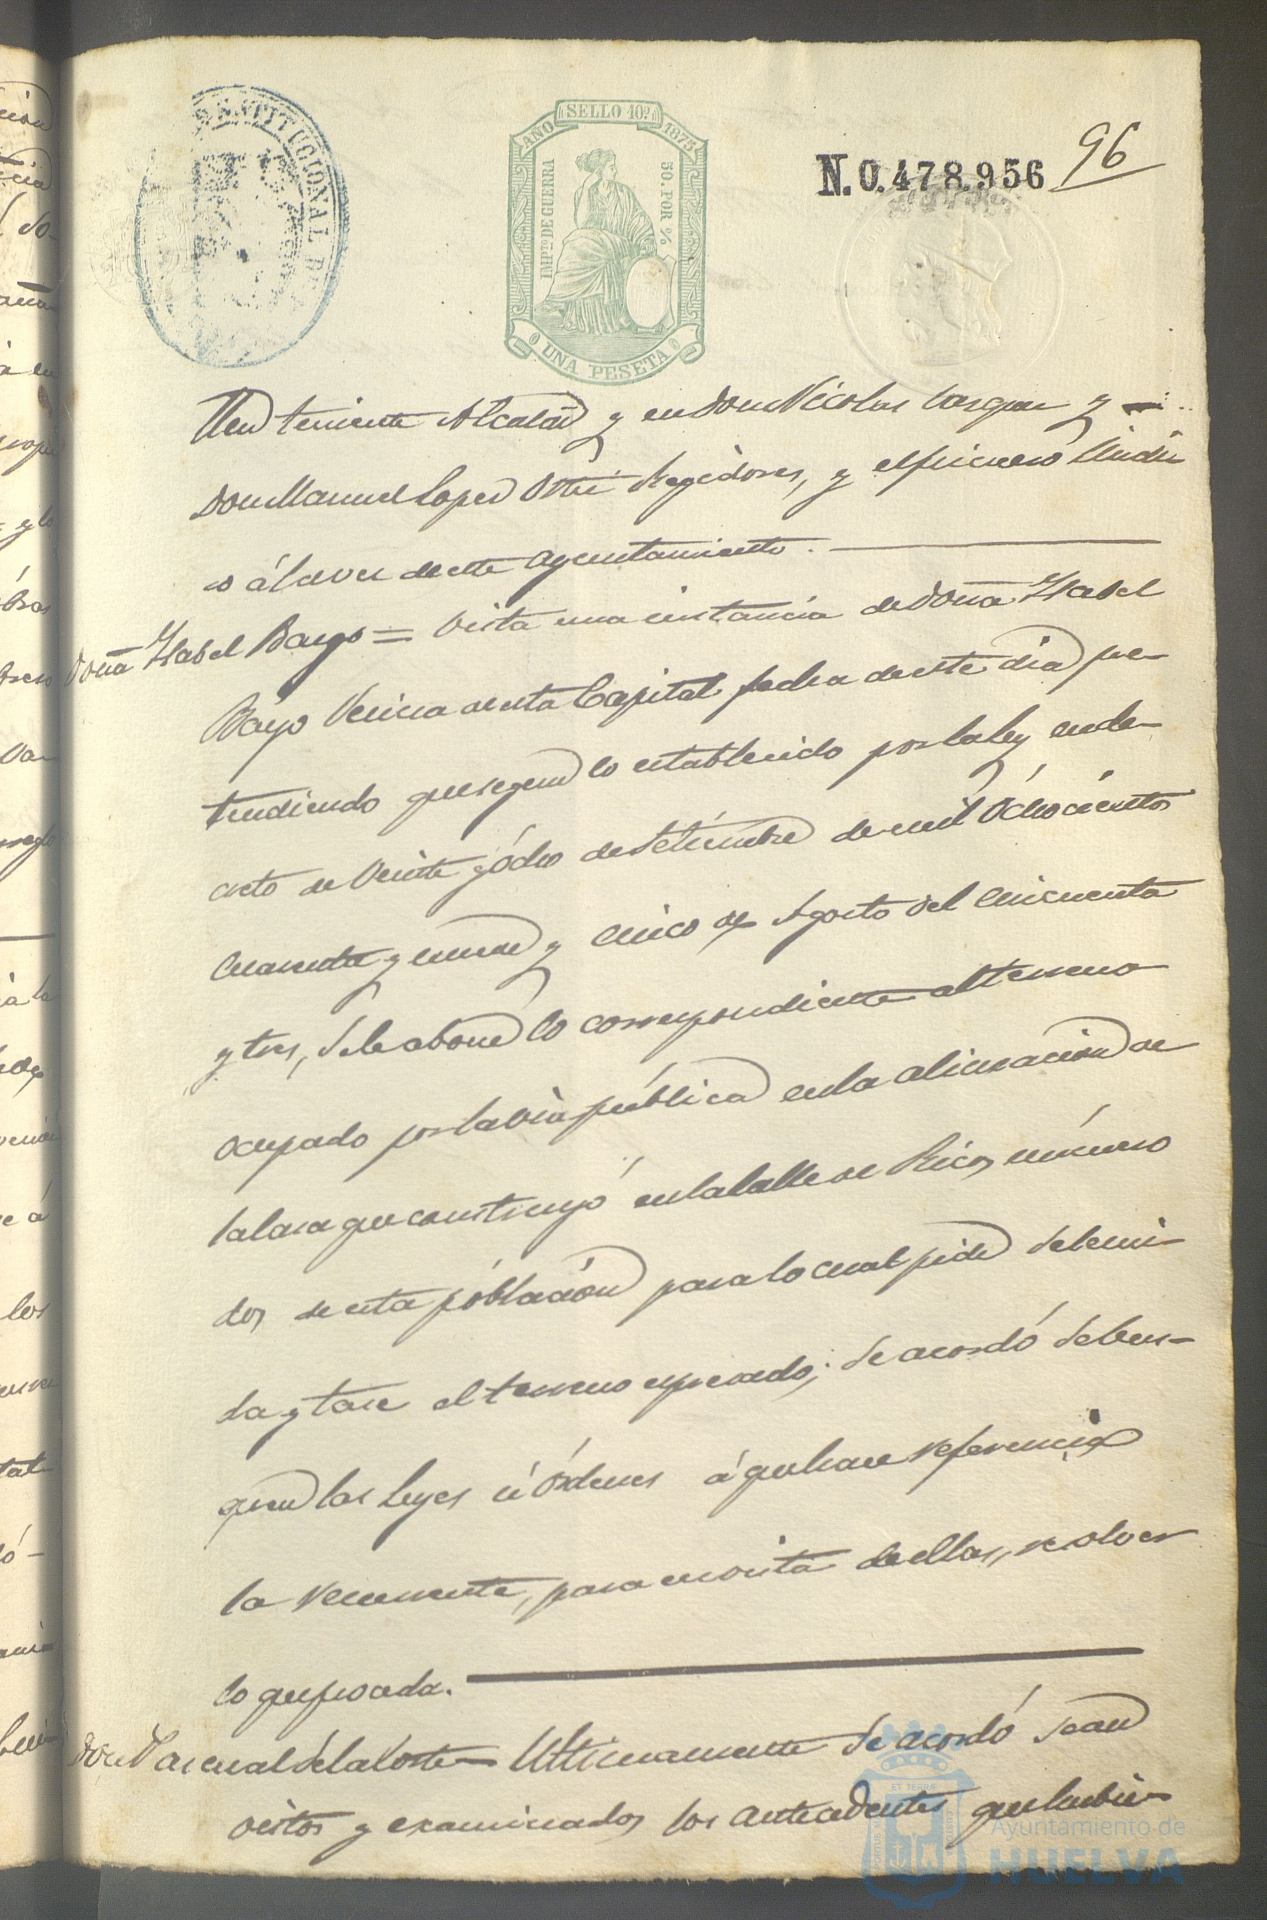 CONSTITUCIONAL DE
AÑO SELLO 10º 1875
IMPTO DE GUERRA
50 POR %
UNA PESETA
N.0.478.956
96
teniente Alcalde y en Don Nicolas Vazquez y
Don Manuel Lopez Ortiz Regidores, y el primero Sindi
co á la vez de este Ayuntamiento.
Doña Ysabel Bayo = Vista una instancia de Doña Ysabel
Bayo Vecina de esta Capital fecha de este dia pre-
tendiendo que segun lo establecido por la ley en de-
creto de Veinte y ócho de Setiembre de mil Óchocientos
Cuarenta y nueve y Cinco de Agosto del Cincuenta
y tres, se le abone lo correspondiente al terreno
ocupado por la via pública en la alineacion de
la Casa que construyó en la Calle de Rico, número
dos de esta póblacion para lo cual pide se le mi-
da y tase el terreno espresado; se acordó se bus-
quen las leyes ú órdenes á que hace referencia
la recurrente, para en vista de ellas, resolver
lo que proceda.
Don Pascual de la Corte = Ultimamente se acordó sean
vistos y examinados los antecedentes que hubie-
ET TERRÆ
Ayuntamiento de
HUELVA